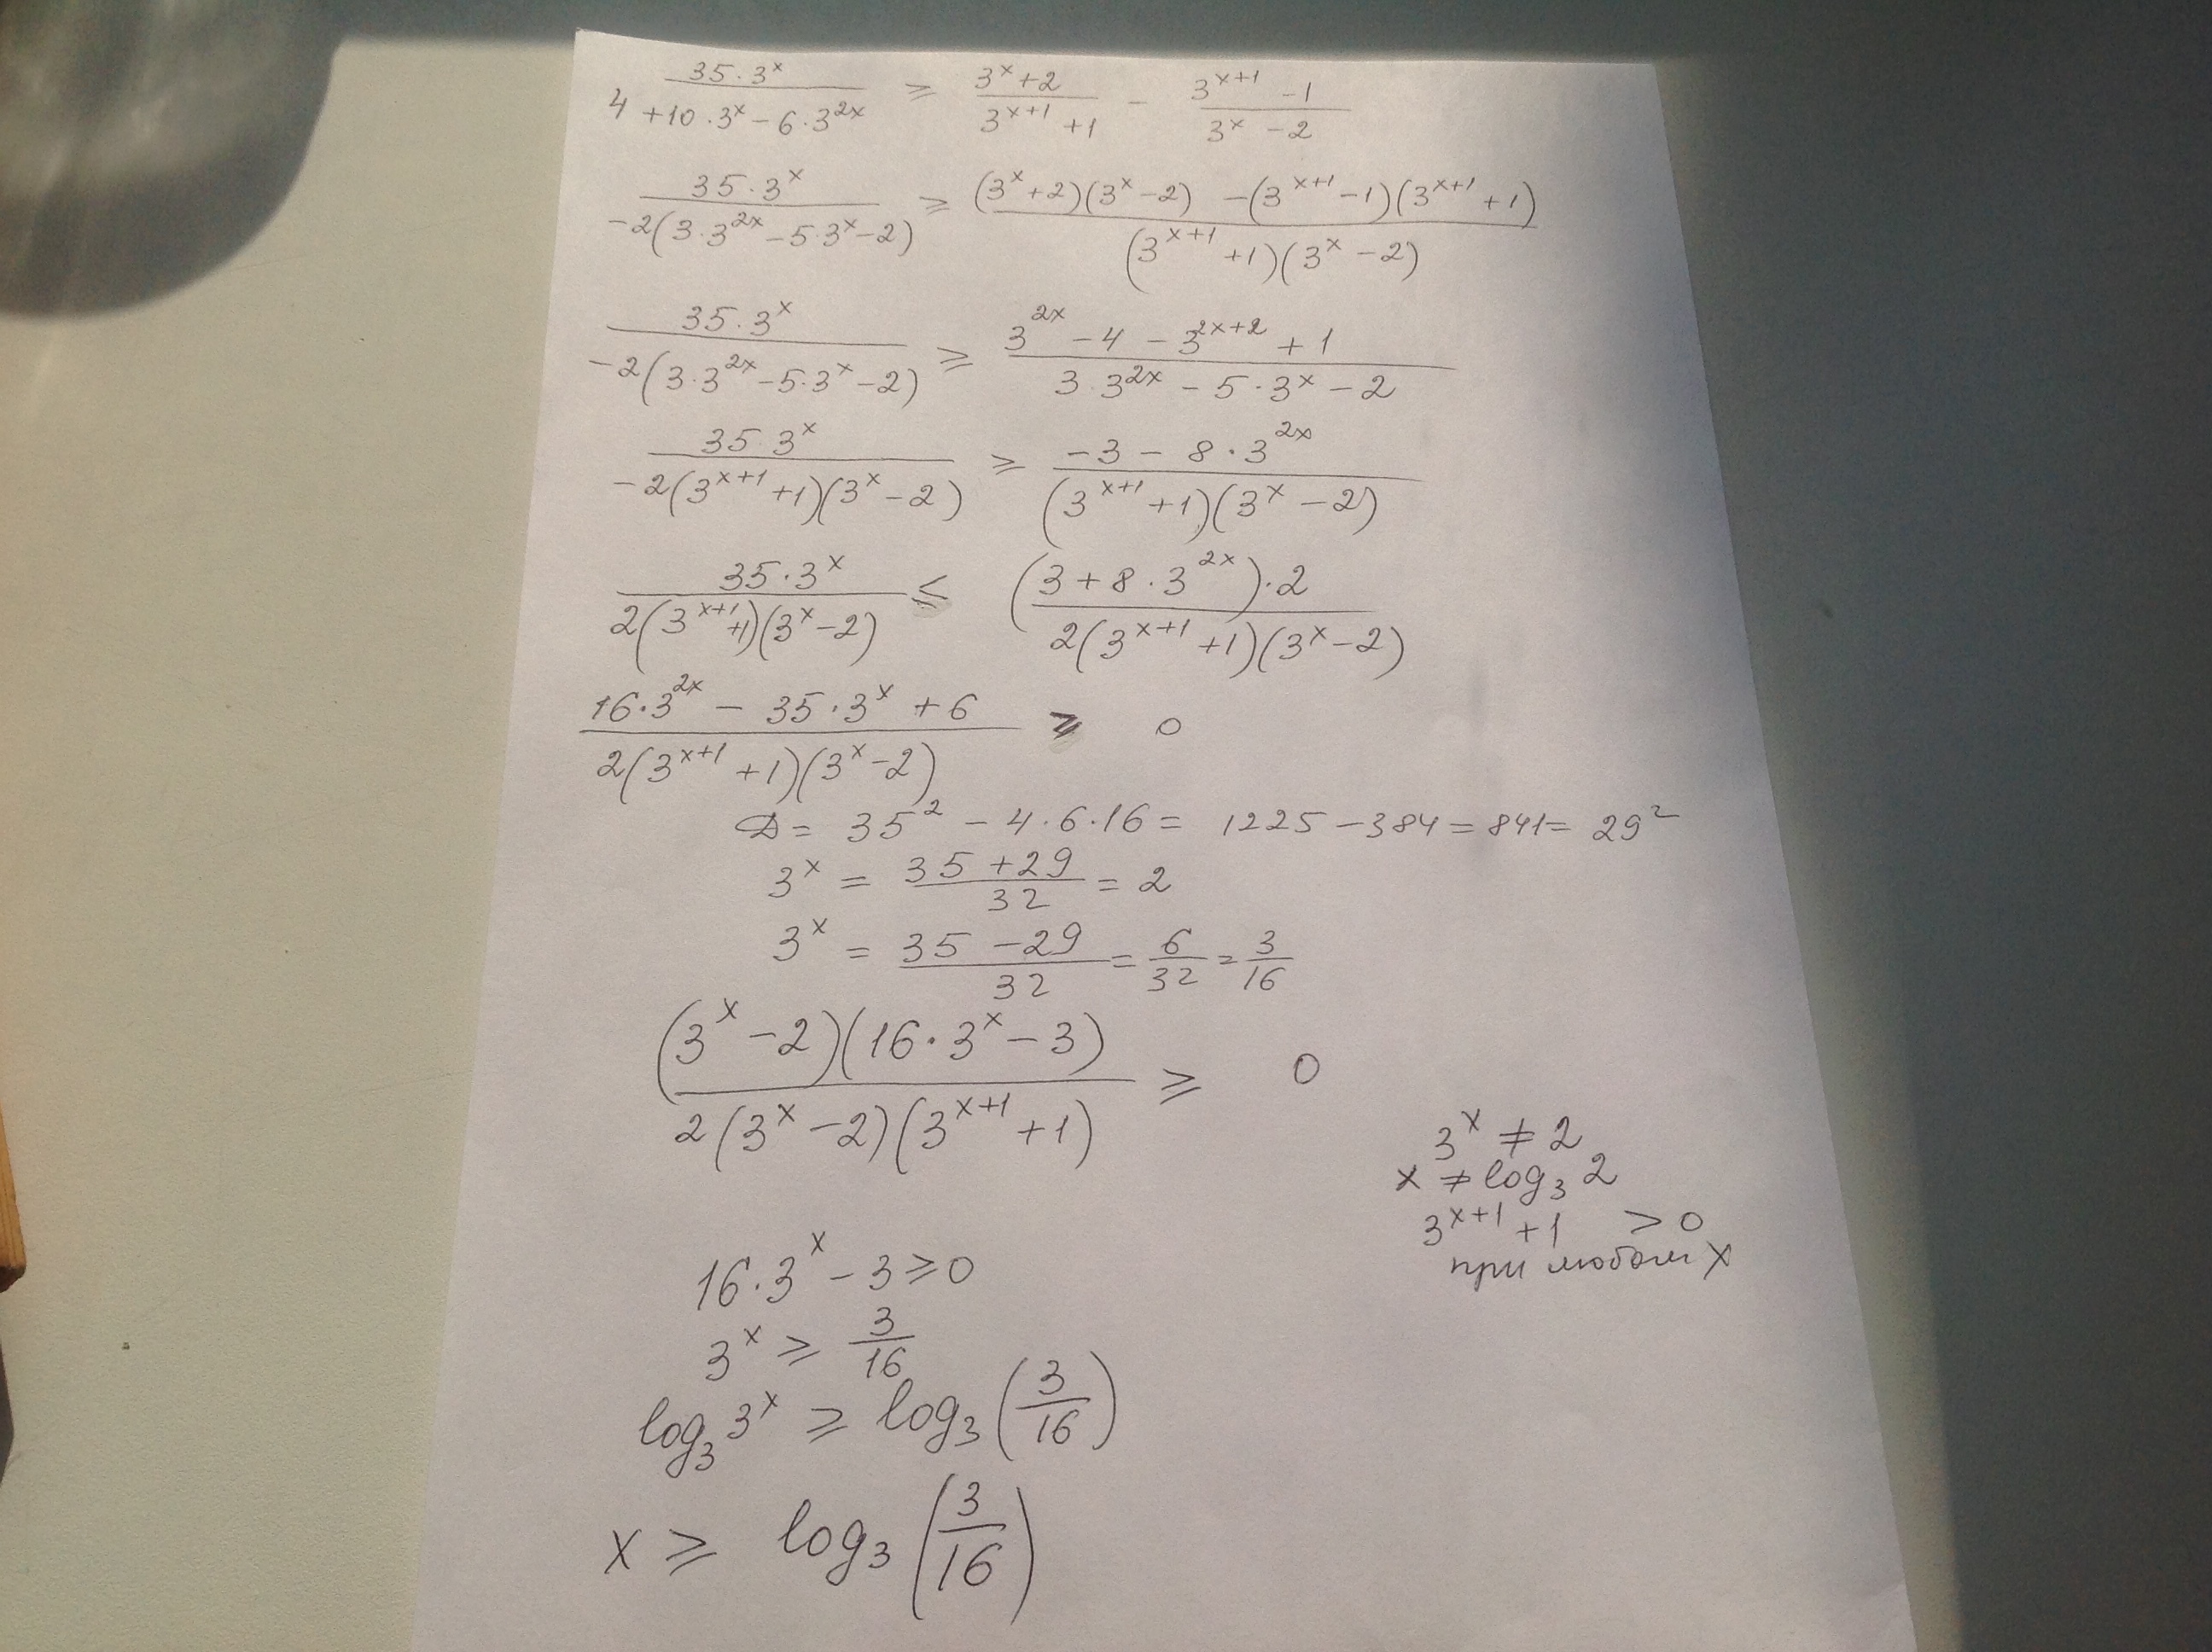 35·3^x / (4 + 10·3^x − 6·3^{2x}) ⩾ (3^x + 2) / (3^{x+1} + 1) − (3^{x+1} − 1) / (3^x − 2)
35·3^x / (−2(3·3^{2x} − 5·3^x − 2)) ⩾ ((3^x + 2)(3^x − 2) − (3^{x+1} − 1)(3^{x+1} + 1)) / ((3^{x+1} + 1)(3^x − 2))
35·3^x / (−2(3·3^{2x} − 5·3^x − 2)) ⩾ (3^{2x} − 4 − 3^{2x+2} + 1) / (3·3^{2x} − 5·3^x − 2)
35·3^x / (−2(3^{x+1} + 1)(3^x − 2)) ⩾ (−3 − 8·3^{2x}) / ((3^{x+1} + 1)(3^x − 2))
35·3^x / (2(3^{x+1} + 1)(3^x − 2)) ⩽ (3 + 8·3^{2x})·2 / (2(3^{x+1} + 1)(3^x − 2))
(16·3^{2x} − 35·3^x + 6) / (2(3^{x+1} + 1)(3^x − 2)) ⩾ 0
D = 35² − 4·6·16 = 1225 − 384 = 841 = 29²
3^x = (35 + 29) / 32 = 2
3^x = (35 − 29) / 32 = 6/32 = 3/16
(3^x − 2)(16·3^x − 3) / (2(3^x − 2)(3^{x+1} + 1)) ⩾ 0
3^x ≠ 2
x ≠ log₃ 2
3^{x+1} + 1 > 0
при любом x
16·3^x − 3 ⩾ 0
3^x ⩾ 3/16
log₃ 3^x ⩾ log₃ (3/16)
x ⩾ log₃ (3/16)